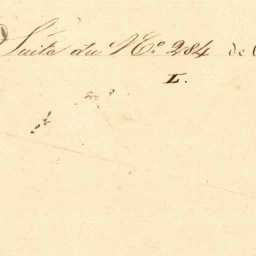 Suite du No. 284 de
L.